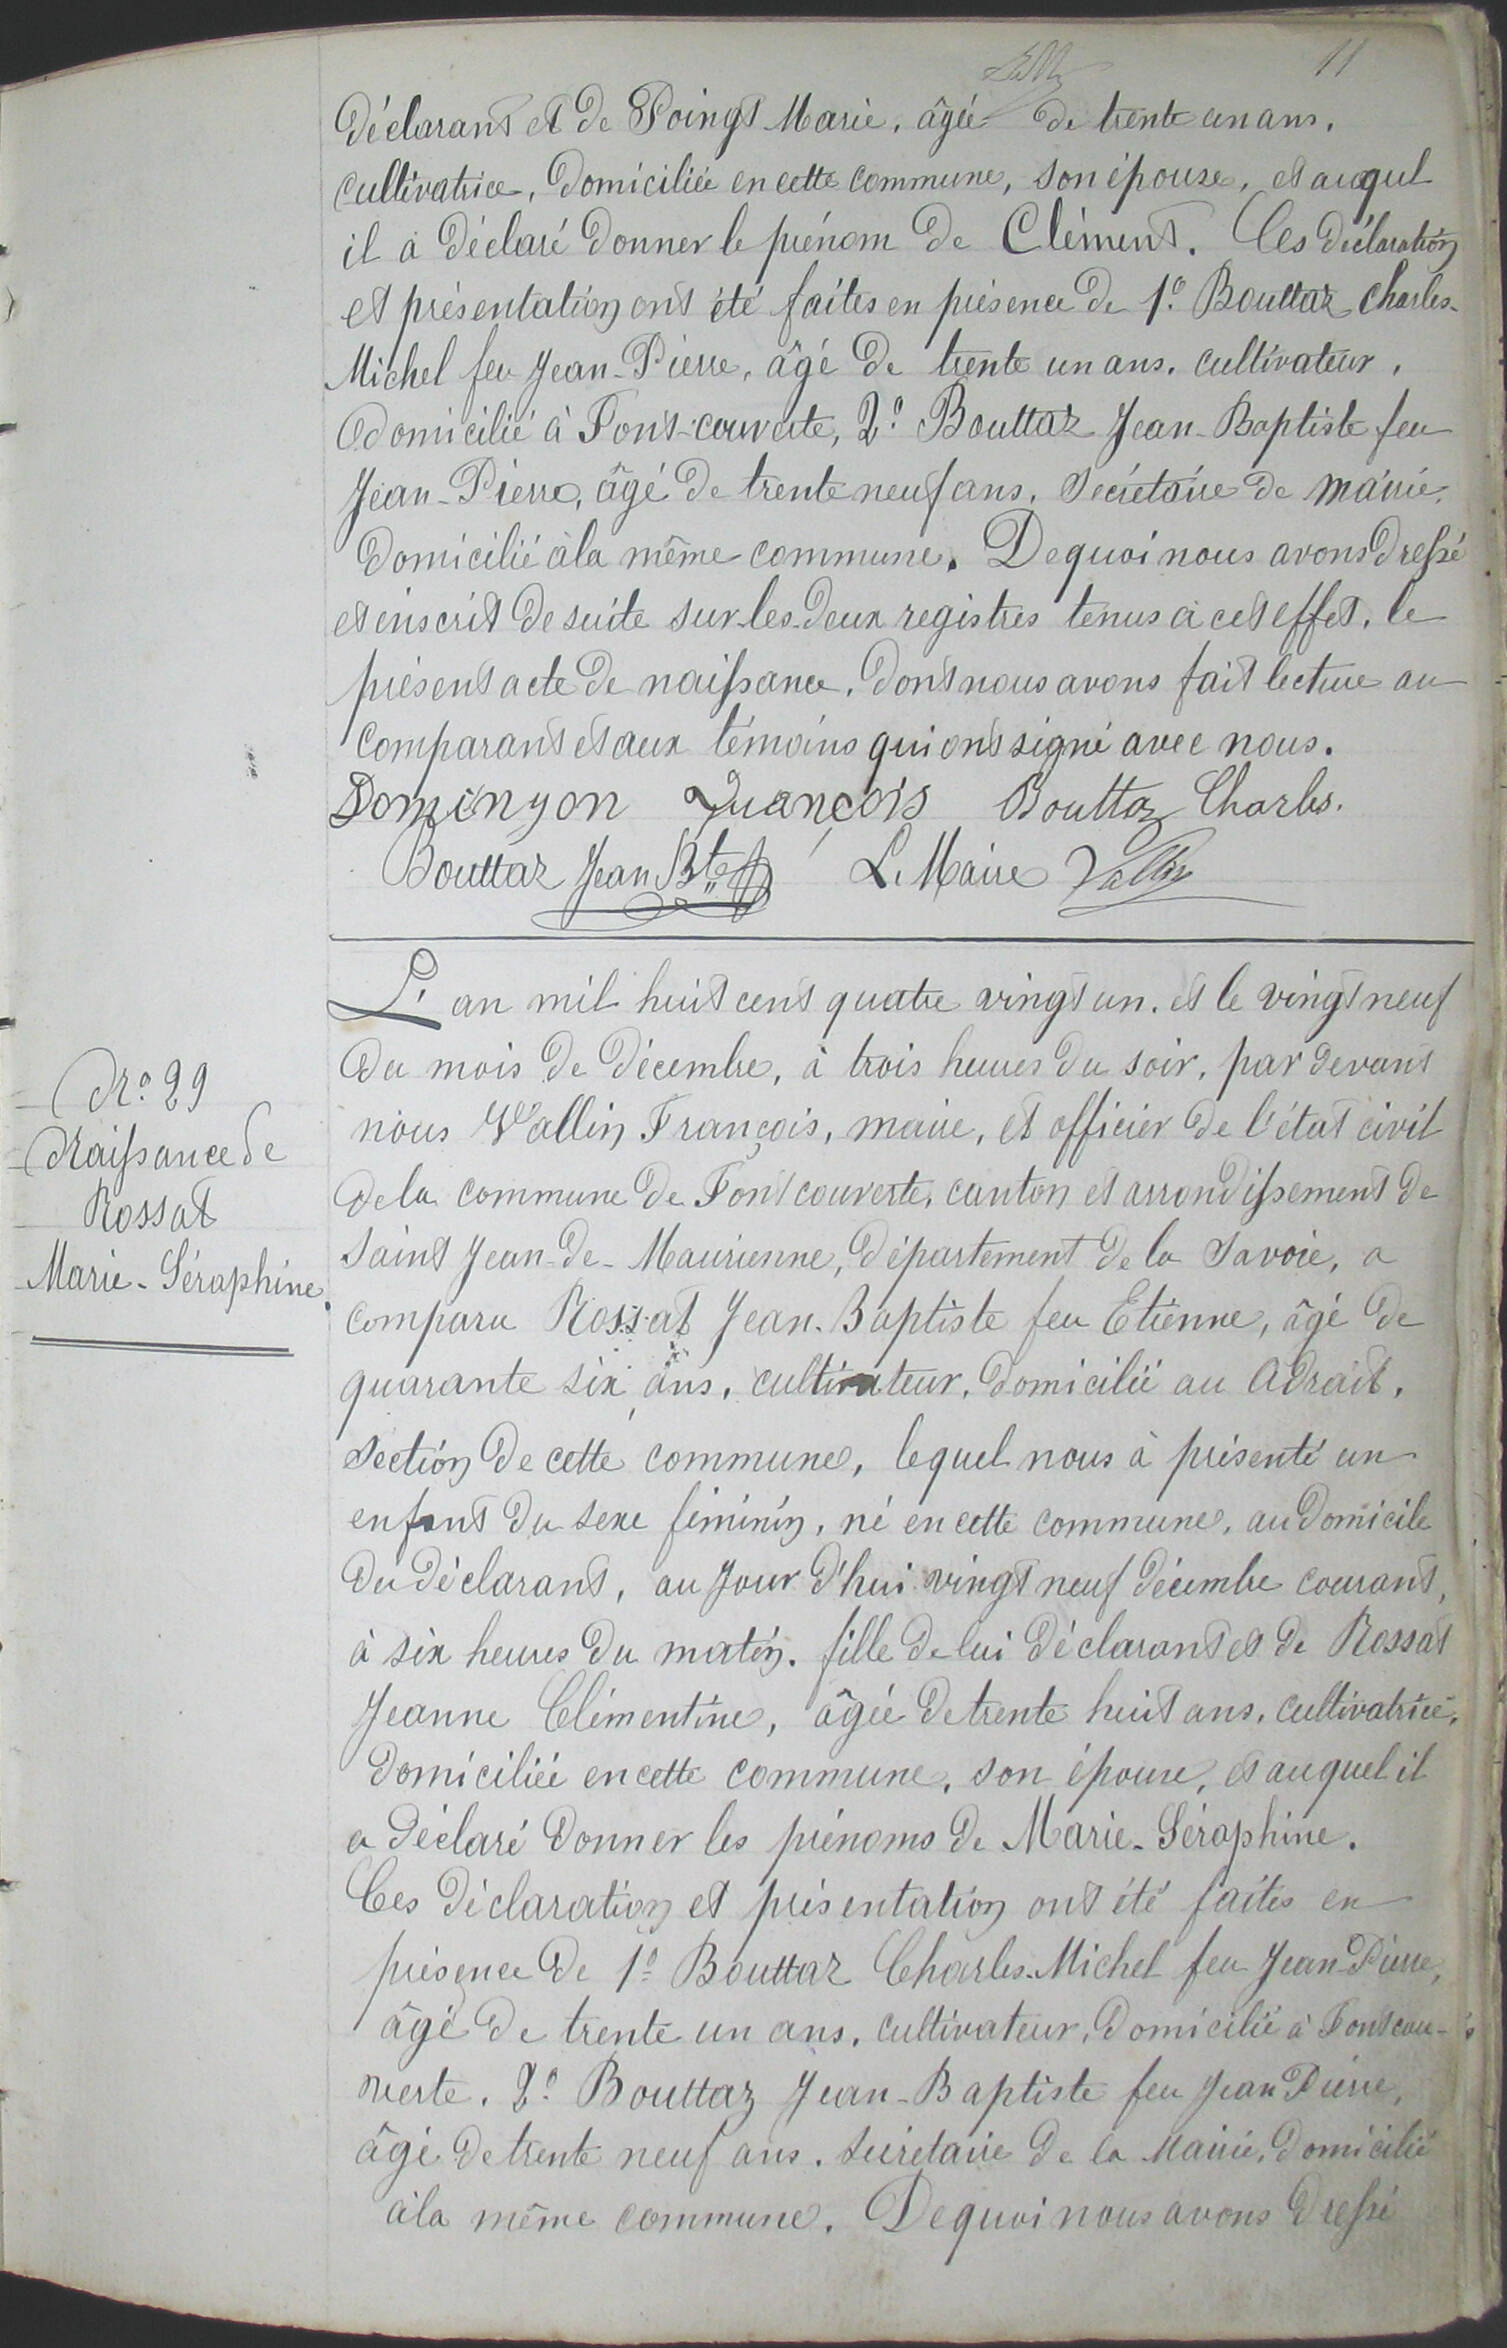 11
déclarant et de Poingt Marie, âgée de trente un ans,
cultivatrice, domiciliée en cette commune, son épouse, et auquel
il a déclaré donner le prénom de Clément. Ces déclaration
et présentation ont été faites en présence de 1º Bouttaz Charles-
Michel feu Jean-Pierre, âgé de trente un ans, cultivateur,
domicilié à Font-couverte, 2º Bouttaz Jean-Baptiste feu
Jean-Pierre, âgé de trente neuf ans, Secrétaire de mairie,
domicilié à la même commune. De quoi nous avons dressé
et inscrit de suite sur les deux registres tenus à cet effet, le
présent acte de naissance, dont nous avons fait lecture au
comparant et aux témoins qui ont signé avec nous.
Dominyon François Bouttaz Charles.
Bouttaz Jean Bte L. Maire Vallin
L'an mil huit cent quatre vingt un, et le vingt neuf
du mois de décembre, à trois heures du soir, par devant
Nº 29
nous Vallin François, maire, et officier de l'état civil
Naissance de
de la commune de Fontcouverte, canton et arrondissement de
Rossat
Saint Jean-de-Maurienne, département de la Savoie, a
Marie-Séraphine.
comparu Rossat Jean-Baptiste feu Etienne, âgé de
quarante six ans, cultivateur, domicilié au Adrait,
section de cette commune, lequel nous à présenté un
enfant du sexe féminin, né en cette commune, au domicile
du déclarant, au jour d'hui vingt neuf décembre courant,
à six heures du matin, fille de lui déclarant et de Rossat
Jeanne Clémentine, âgée de trente huit ans, cultivatrice,
domiciliée en cette commune, son épouse, et auquel il
a déclaré donner les prénoms de Marie-Séraphine.
Ces déclaration et présentation ont été faites en
présence de 1º Bouttaz Charles-Michel feu Jean-Pierre,
âgé de trente un ans, cultivateur, domicilié à Fontcou-
verte, 2º Bouttaz Jean-Baptiste feu Jean Pierre,
âgé de trente neuf ans, secrétaire de la Mairie, domicilié
à la même commune. De quoi nous avons dressé